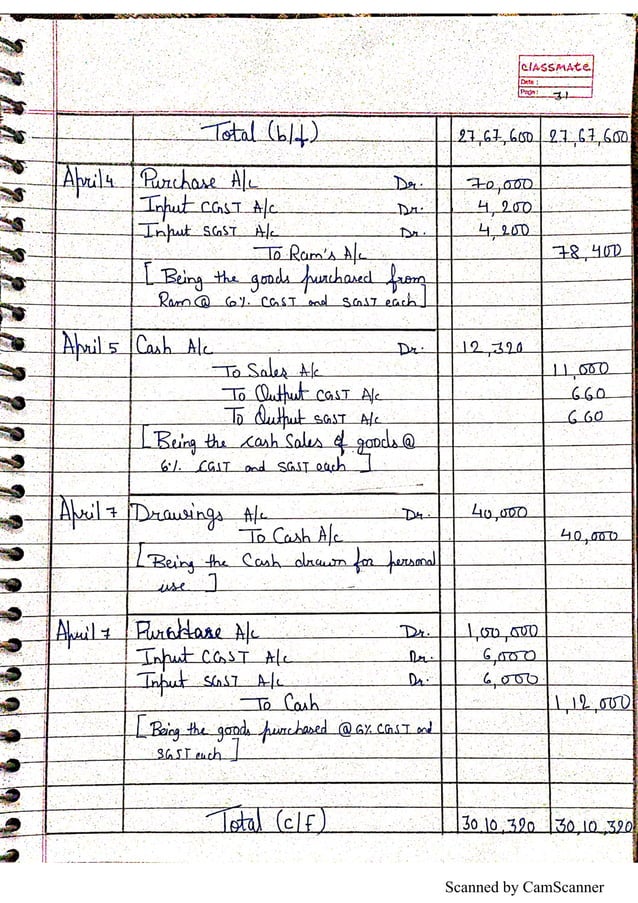 classmate
Date :
Page : 31
Total (b/f) 27,67,600 27,67,600
April 4 Purchase A/c Dr. 70,000
Input CGST A/c Dr. 4,200
Input SGST A/c Dr. 4,200
To Ram's A/c 78,400
[Being the goods purchased from
Ram @ 6% CGST and SGST each]
April 5 Cash A/c Dr. 12,320
To Sales A/c 11,000
To Output CGST A/c 660
To Output SGST A/c 660
[Being the cash sales of goods @
6% CGST and SGST each]
April 7 Drawings A/c Dr. 40,000
To Cash A/c 40,000
[Being the Cash drawn for personal
use]
April 7 Purchase A/c Dr. 1,00,000
Input CGST A/c Dr. 6,000
Input SGST A/c Dr. 6,000
To Cash 1,12,000
[Being the goods purchased @ 6% CGST and
SGST each]
Total (c/f) 30,10,320 30,10,320
Scanned by CamScanner